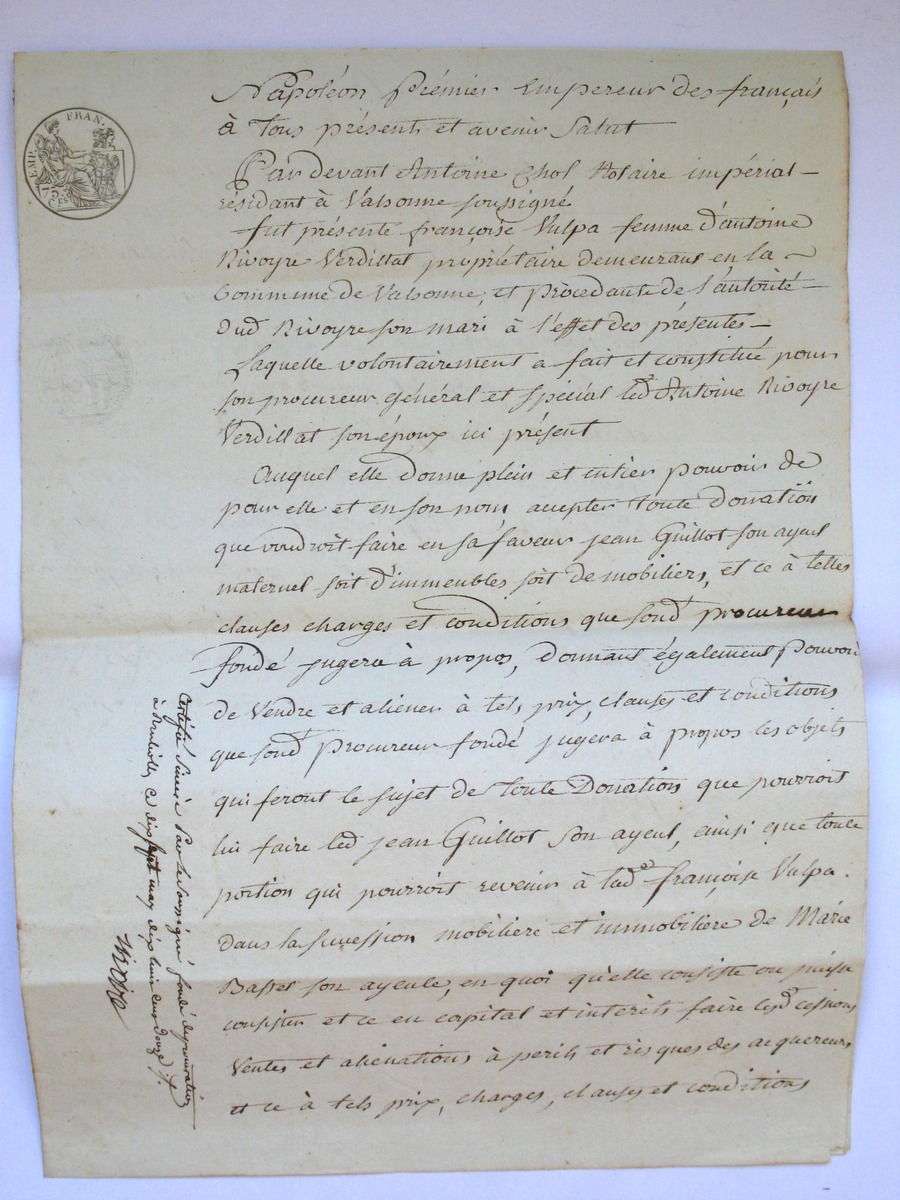 EMP. FRAN.
Napoléon prémier Empereur des français
à tous présents et avenir Salut
Par devant Antoine Chol Notaire impérial
résidant à Valsonne soussigné
fut présente françoise Vulpa femme d'antoine
Rivoyre Verdillat propriétaire demeurant en la
Commune de Valsonne, et procedante de l'autorité
dud Rivoyre son mari à l'effet des présentes
Laquelle volontairement a fait et constitué pour
son procureur général et spécial led Antoine Rivoyre
Verdillat son époux ici présent
Auquel elle donne plein et entier pouvoir de
pour elle et en son nom accepter toute donnation
que voudroit faire en sa faveur jean Guillot son ayeul
maternel soit d'immeubles soit de mobiliers, et ce à telles
clauses charges et conditions que sond procureur
fondé jugera à propos, donnant également pouvoir
de Vendre et aliéner à tels prix, clauses et conditions
que sond procureur fondé jugera à propos les objets
qui feront le sujet de toute Donation que pourroit
lui faire led jean Guillot son ayeul, ainsi que toute
portion qui pourroit revenir à lade françoise Vulpa.
dans la succession mobiliere et immobiliere de Marie
Basset son ayeule, en quoi qu'elle consiste ou puisse
consister et ce en capital et interêts faire cesd cessions
Ventes et aliénations à perils et risques des acquereurs
et ce à tels prix, charges, clauses et conditions
Certifié Sincere Par le soussigné fondé de procuration
à ce dix sept may dix huit cent douze